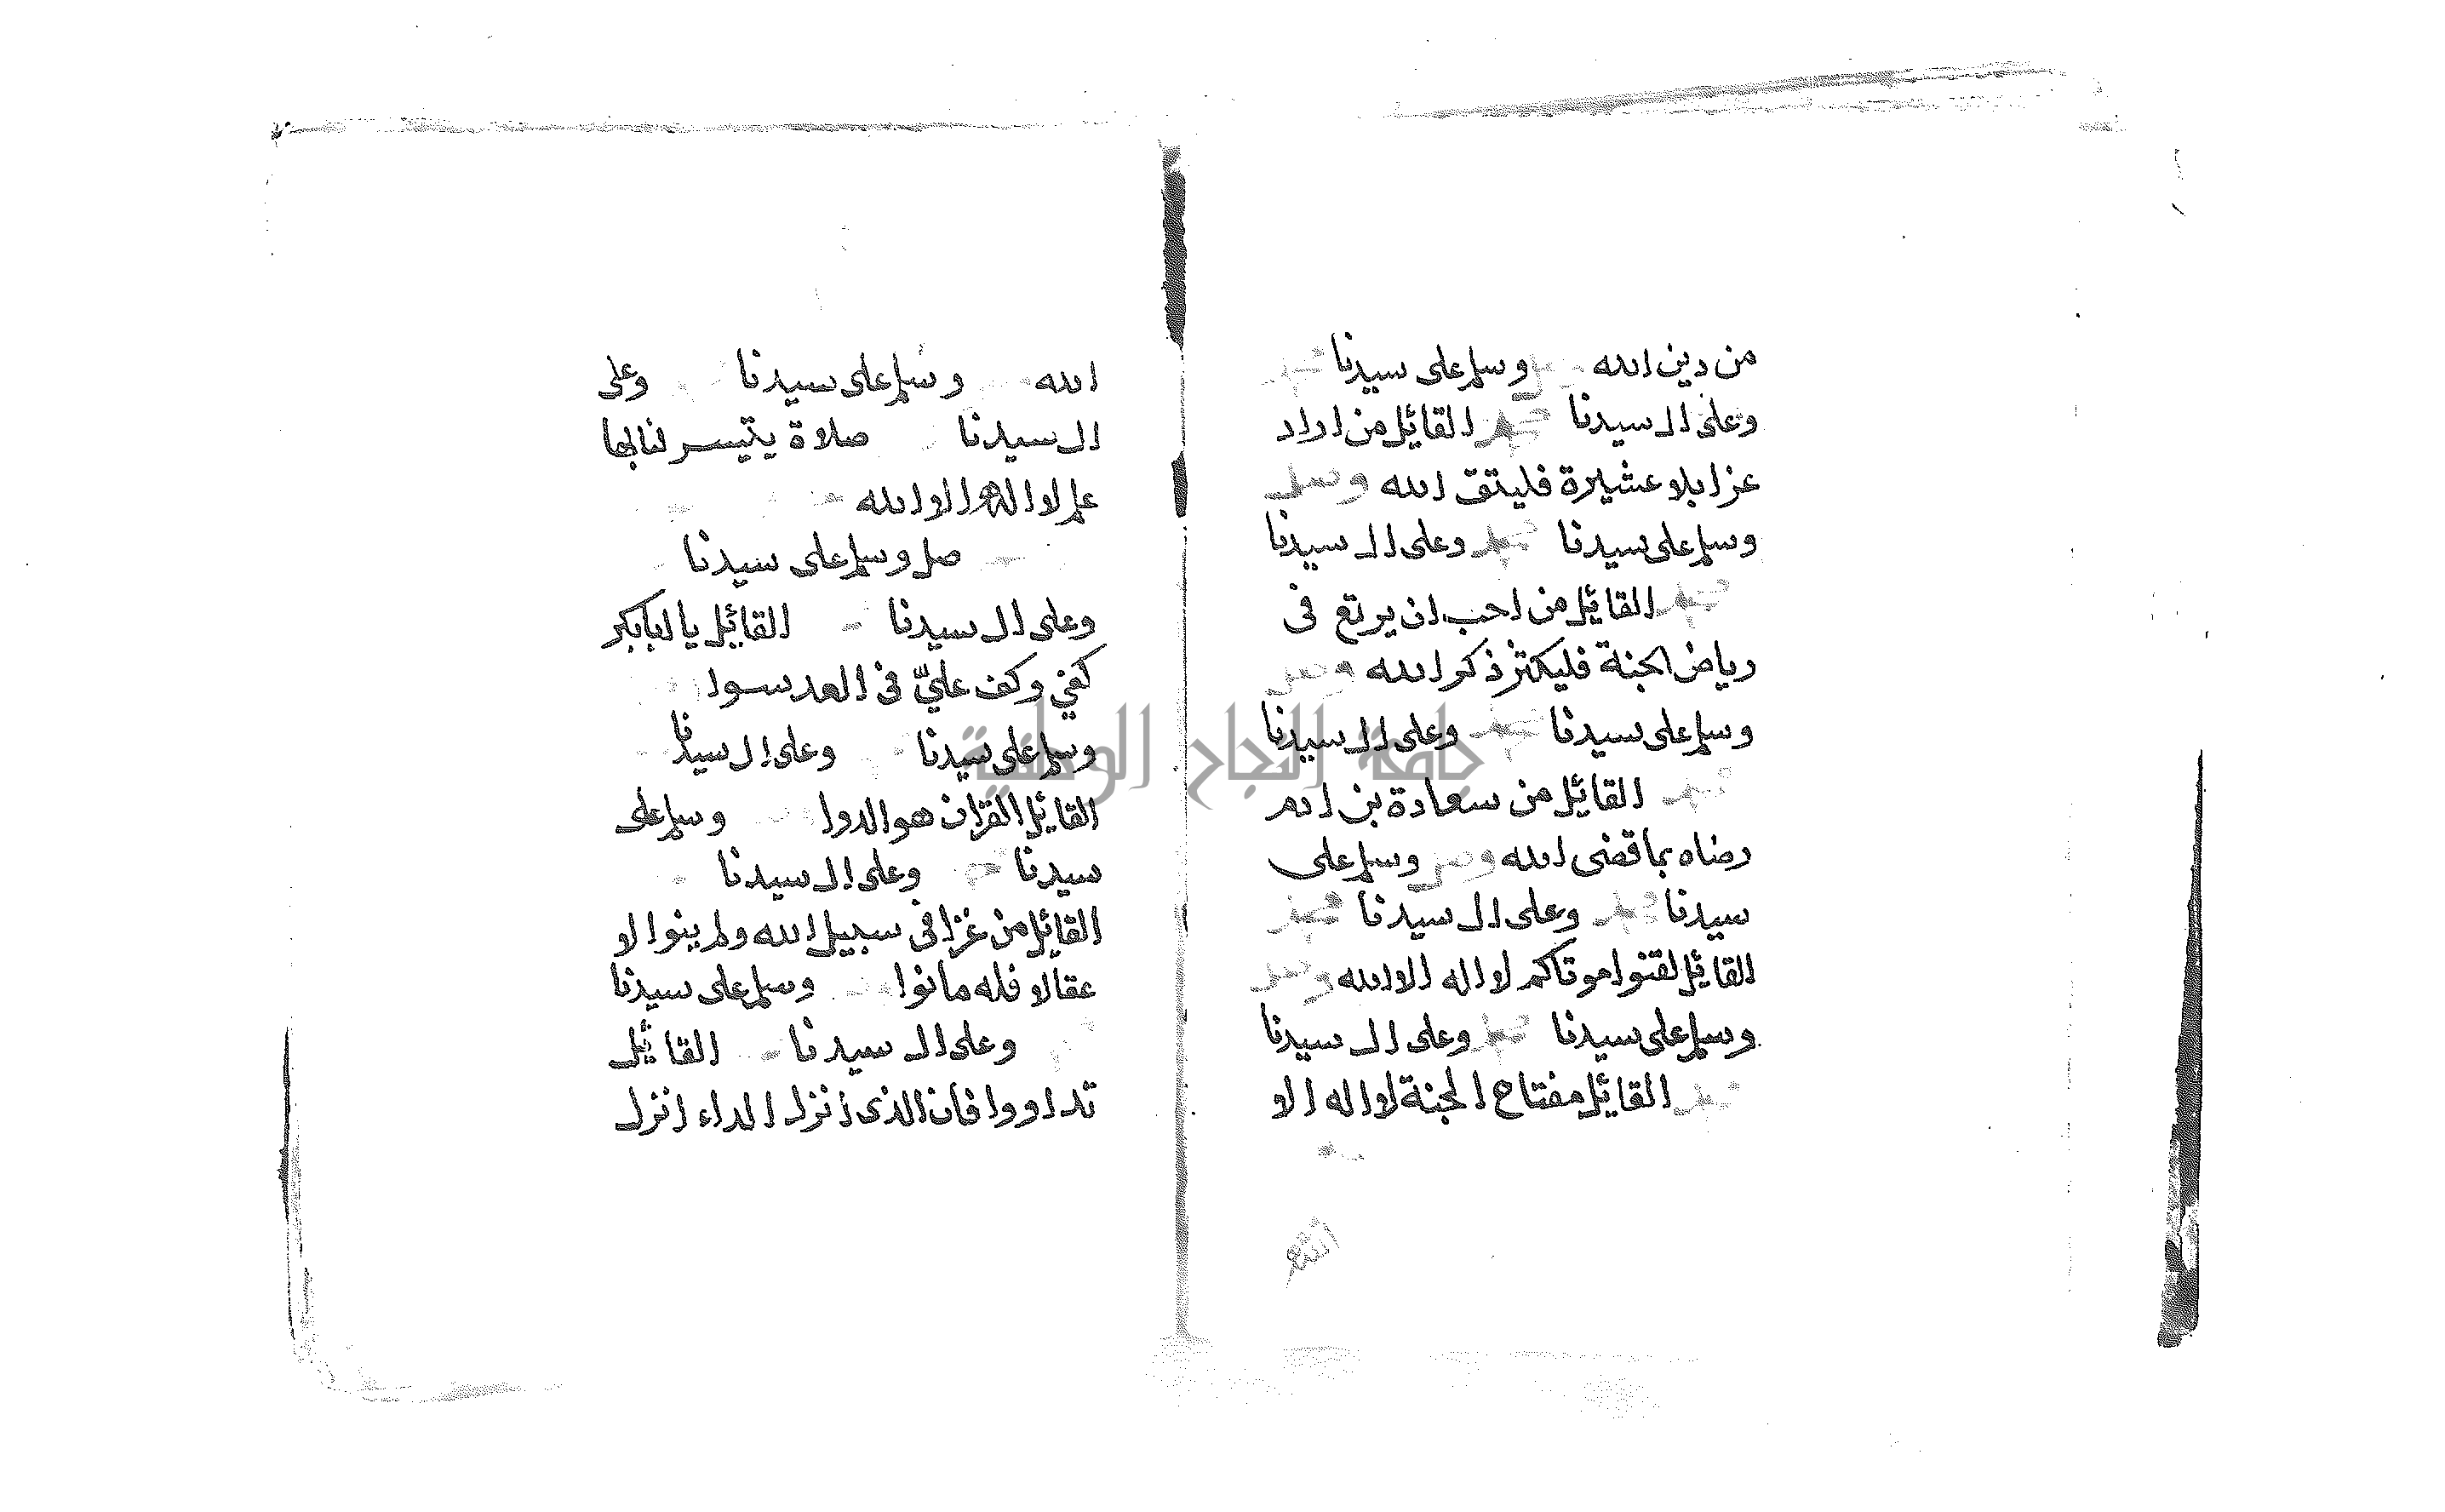 من دين الله وسلم على سيدنا
وعلى ال سيدنا محمد القائل من اراد
عزا بلا عشيرة فليتق الله وصل
وسلم على سيدنا محمد وعلى ال سيدنا
محمد القائل من احب ان يرتع فى
رياض الجنة فليكثر ذكر الله وصل
وسلم على سيدنا محمد وعلى ال سيدنا
محمد القائل من سعادة بن ادم
رضاه بما قضى الله وصل وسلم على
سيدنا محمد وعلى ال سيدنا محمد
القائل لقنوا موتاكم لا اله الا الله وصل
وسلم على سيدنا محمد وعلى ال سيدنا
محمد القائل مفتاح الجنة لا اله الا
الله
الله وسلم على سيدنا وعلى
ال سيدنا صلاة يتيسر لنا بها
علم لا اله الا الله
صل وسلم على سيدنا
وعلى ال سيدنا القائل يا ابابكر
كفي وكف علىّ فى العد سوا
وسلم على سيدنا وعلى ال سيدنا
القائل القران هو الدوا وسلم على
سيدنا وعلى ال سيدنا
القائل من غزا فى سبيل الله ولم ينوا الا
عقالا فله ما نوا وسلم على سيدنا
وعلى ال سيدنا القائل
تداووا فان الذى انزل الداء انزل
جامعة النجاح الوطنية